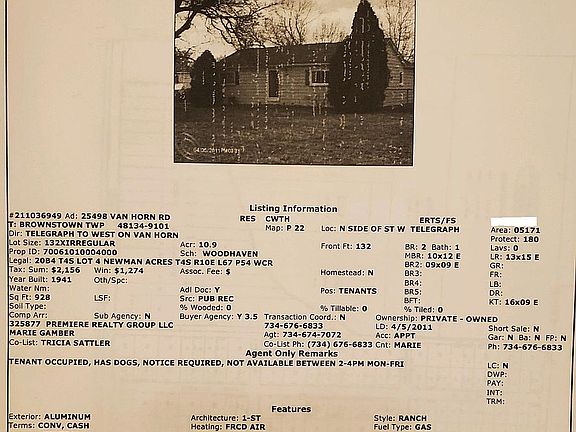 04/05/2011
Listing Information
#211036949 Ad: 25498 VAN HORN RD RES CWTH ERTS/FS
T: BROWNSTOWN TWP 48134-9101 Map: P 22 Loc: N SIDE OF ST W TELEGRAPH Area: 05171
Dir: TELEGRAPH TO WEST ON VAN HORN Protect: 180
Lot Size: 132XIRREGULAR Acr: 10.9 Front Ft: 132 BR: 2 Bath: 1 Lavs: 0
Prop ID: 70061010004000 Sch: WOODHAVEN MBR: 10x12 E LR: 13x15 E
Legal: 2084 T45 LOT 4 NEWMAN ACRES T4S R10E L67 P54 WCR BR2: 09x09 E GR:
Tax: Sum: $2,156 Win: $1,274 Assoc. Fee: $ Homestead: N BR3: FR:
Year Built: 1941 Oth/Spc: BR4: LB:
Water Nm: Adl Doc: Y Pos: TENANTS BR5: DR:
Sq Ft: 928 LSF: Src: PUB REC BFT: KT: 16x09 E
Soil Type: % Wooded: 0 % Tillable: 0 % Tiled: 0
Comp Arr: Sub Agency: N Buyer Agency: Y 3.5 Transaction Coord.: N Ownership: PRIVATE - OWNED
325877 PREMIERE REALTY GROUP LLC 734-676-6833 LD: 4/5/2011 Short Sale: N
MARIE GAMBER Agt: 734-674-7072 Acc: APPT Gar: N Ba: N FP: N
Co-List: TRICIA SATTLER Co-List Ph: (734) 676-6833 Cnt: MARIE Ph: 734-676-6833
Agent Only Remarks
TENANT OCCUPIED, HAS DOGS, NOTICE REQUIRED, NOT AVAILABLE BETWEEN 2-4PM MON-FRI LC: N
DWP:
PAY:
INT:
TRM:
Features
Exterior: ALUMINUM Architecture: 1-ST Style: RANCH
Terms: CONV, CASH Heating: FRCD AIR Fuel Type: GAS